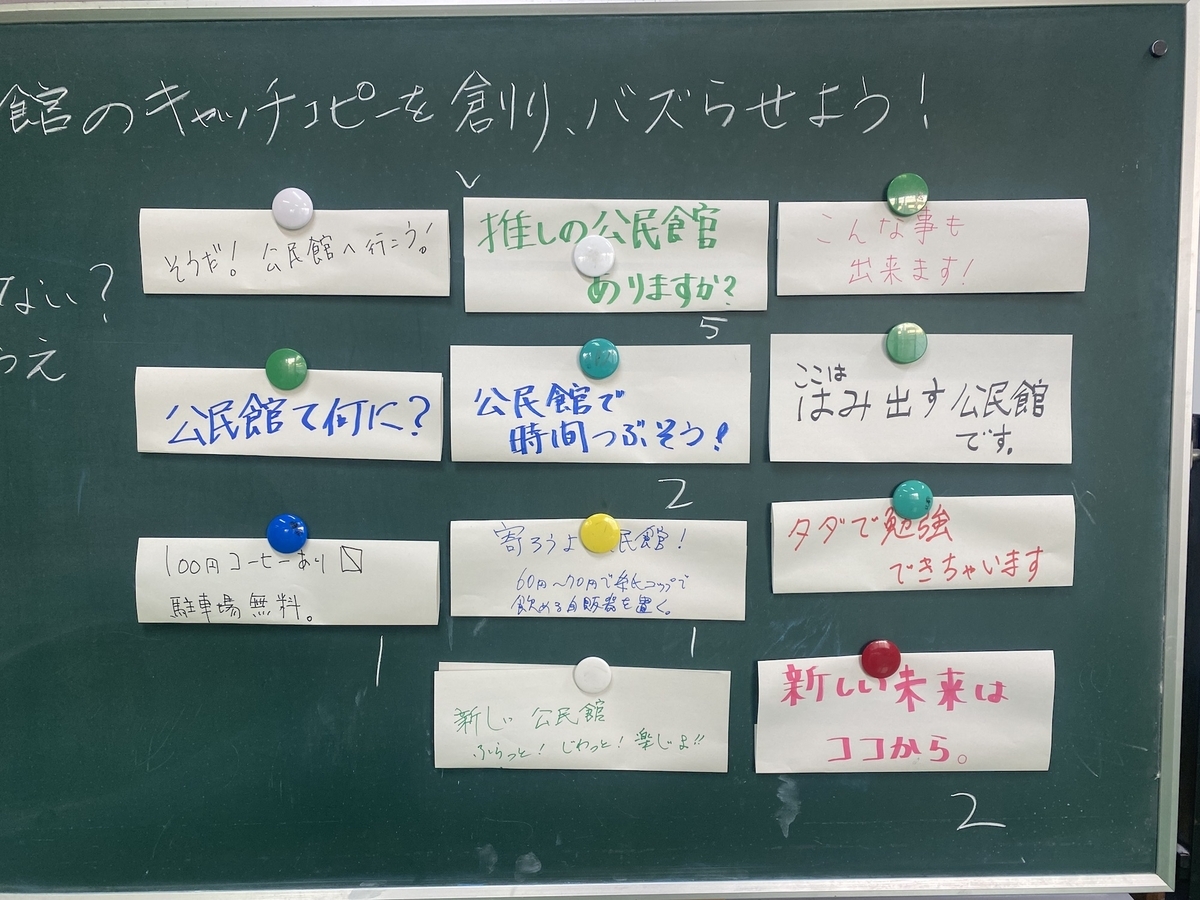 館のキャッチコピーを創り、バズらせよう!
ない?
うえ
そうだ! 公民館へ行こう!
推しの公民館
ありますか?
5
こんな事も
出来ます!
公民館て何に?
公民館で
時間つぶそう!
2
ここは
はみ出す公民館
です。
100円コーヒーあり
駐車場無料。
1
寄ろうよ 民館!
60円~70円で紙コップで
飲める自販器を置く。
1
タダで勉強
できちゃいます
新しい 公民館
ふらっと! じわっと! 楽しよ!!
新しい未来は
ココから。
2